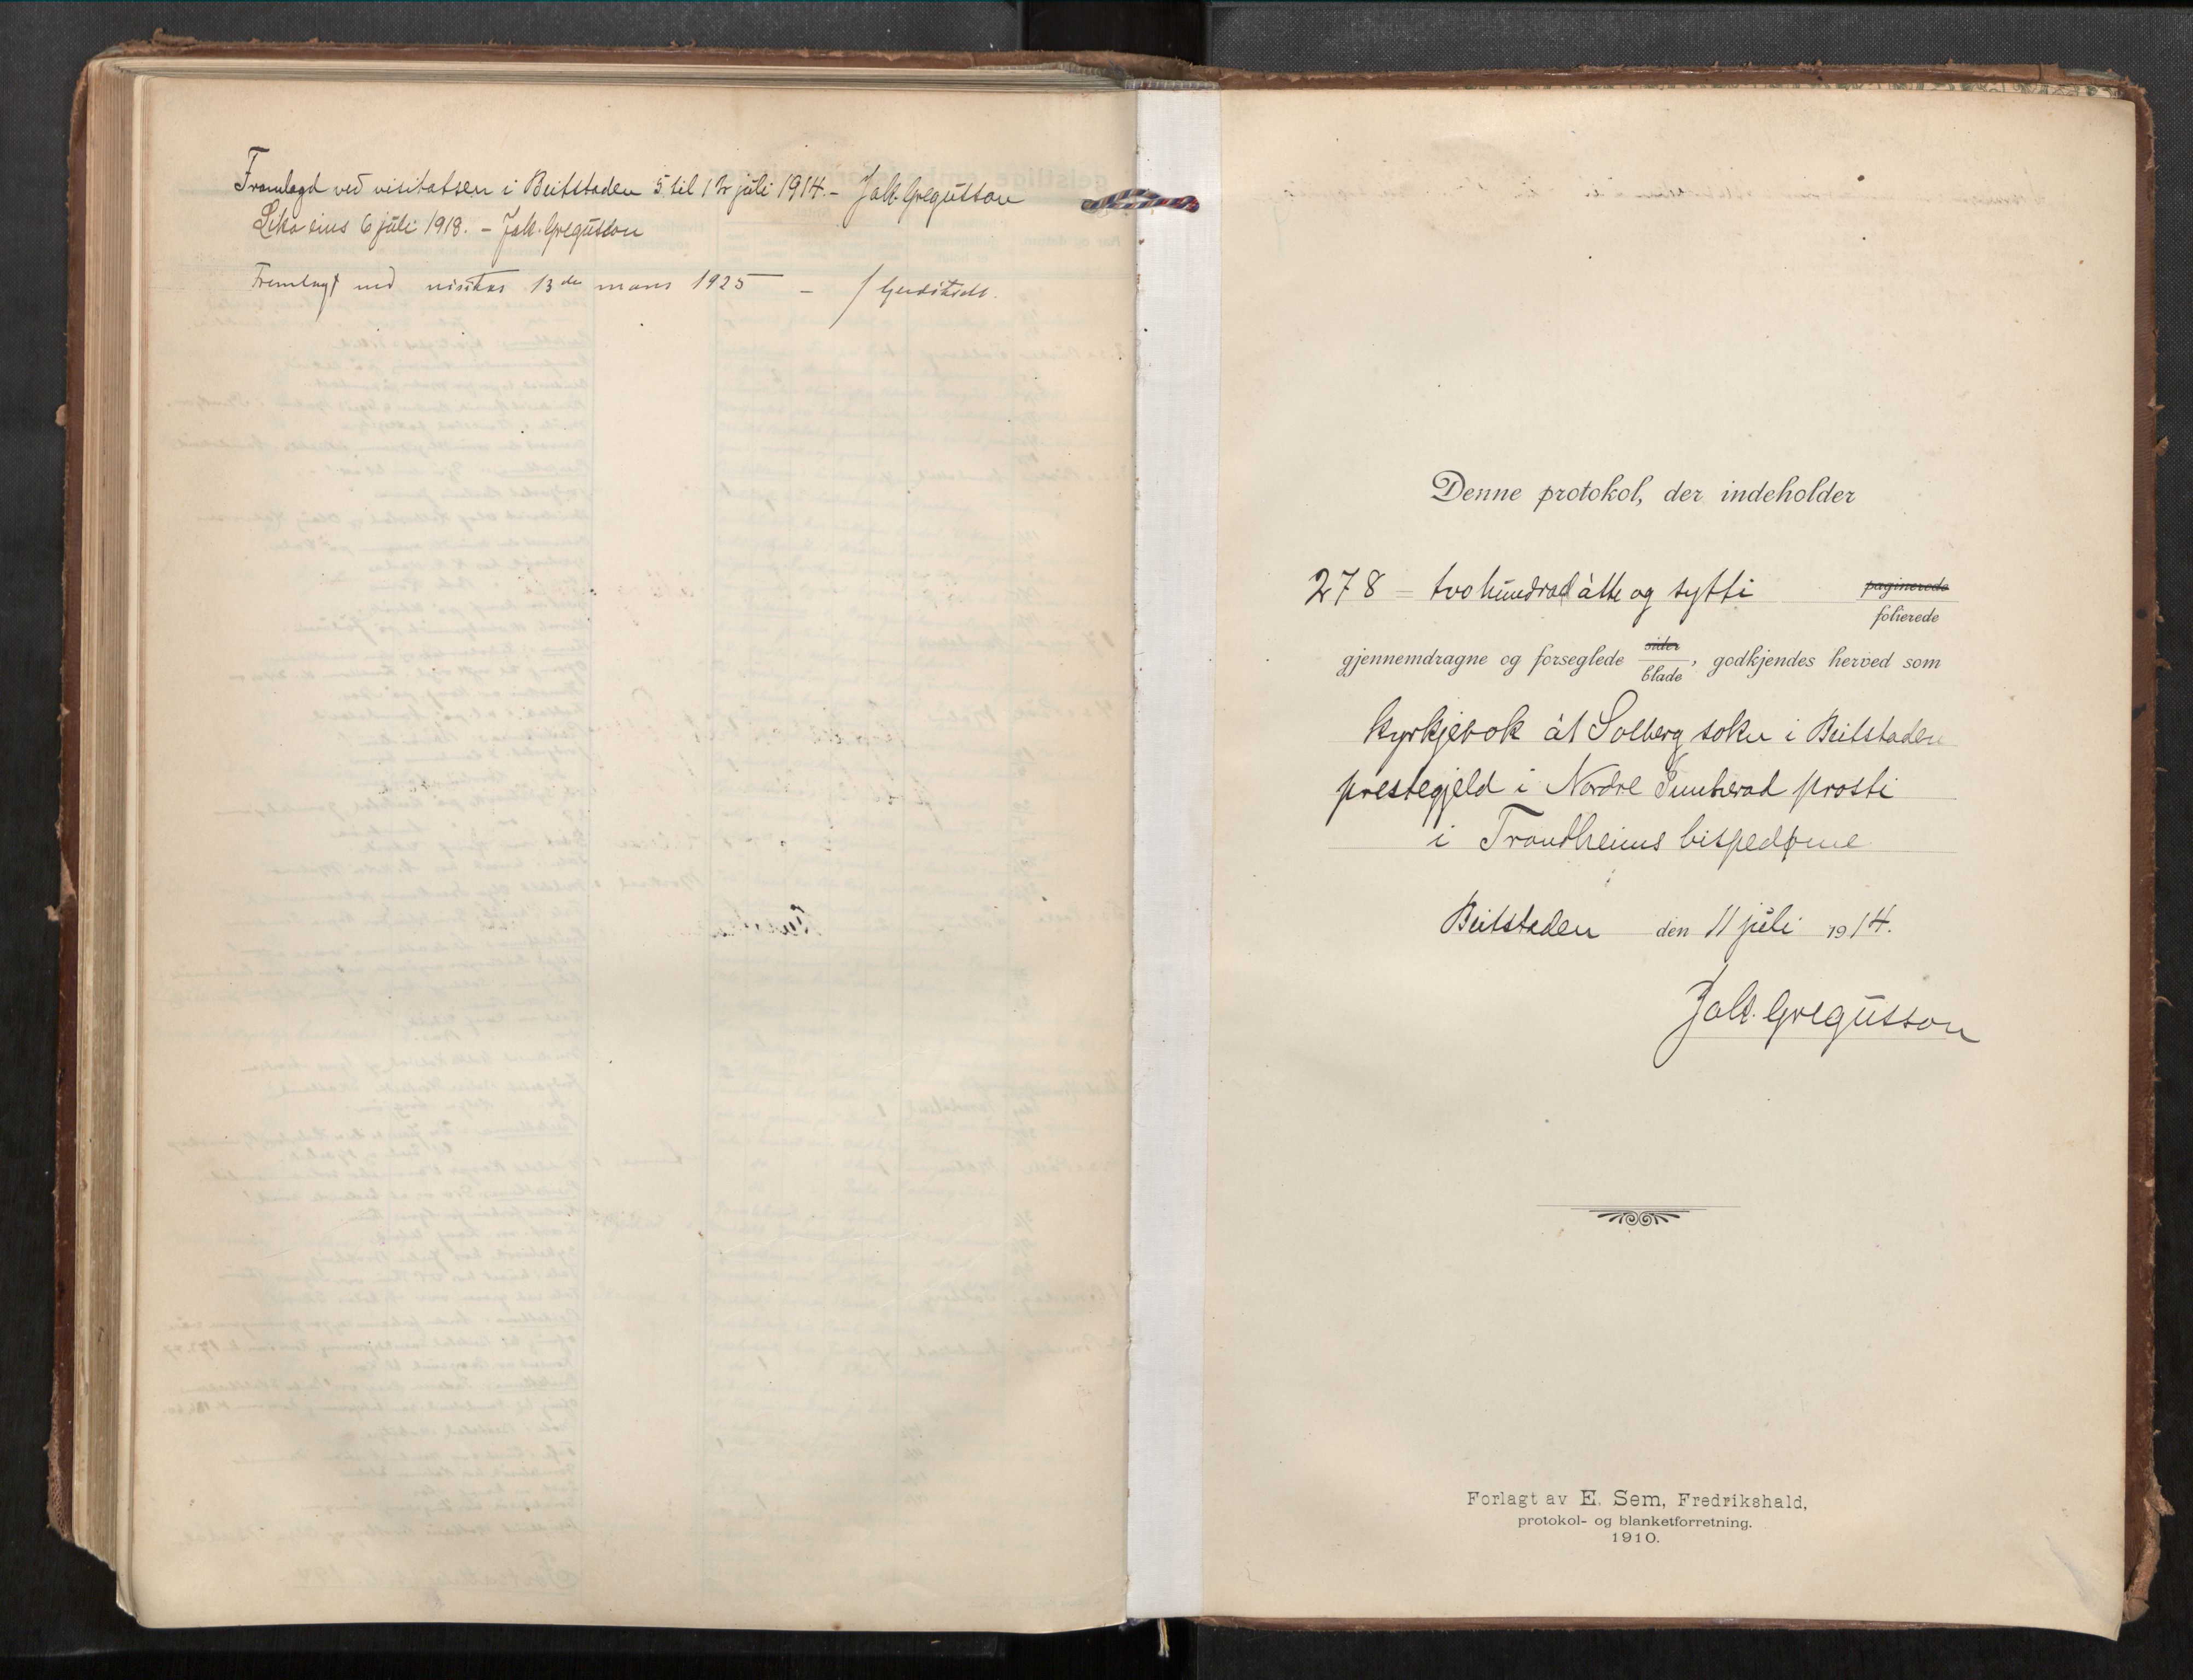 Framlagd ved visitatsen i Beitstaden 5 til 12 juli 1914. – Jak. Gregusson
Likaeins 6 juli 1918. – Jak. Gregusson
Fremlagt ved visitas 13de mars 1925 –
Denne protokol, der indeholder
278 = tvo hundrad åtte og sytti paginerede
folierede
gjennemdragne og forseglede sider blade, godkjendes herved som
kyrkjebok åt Solberg sokn i Beitstaden
prestegjeld i Nordre Innherad prosti
i Trondheims bispedøme
Beitstaden den 11 juli 1914.
Jak. Gregusson
Forlagt av E. Sem, Fredrikshald,
protokol- og blanketforretning.
1910.